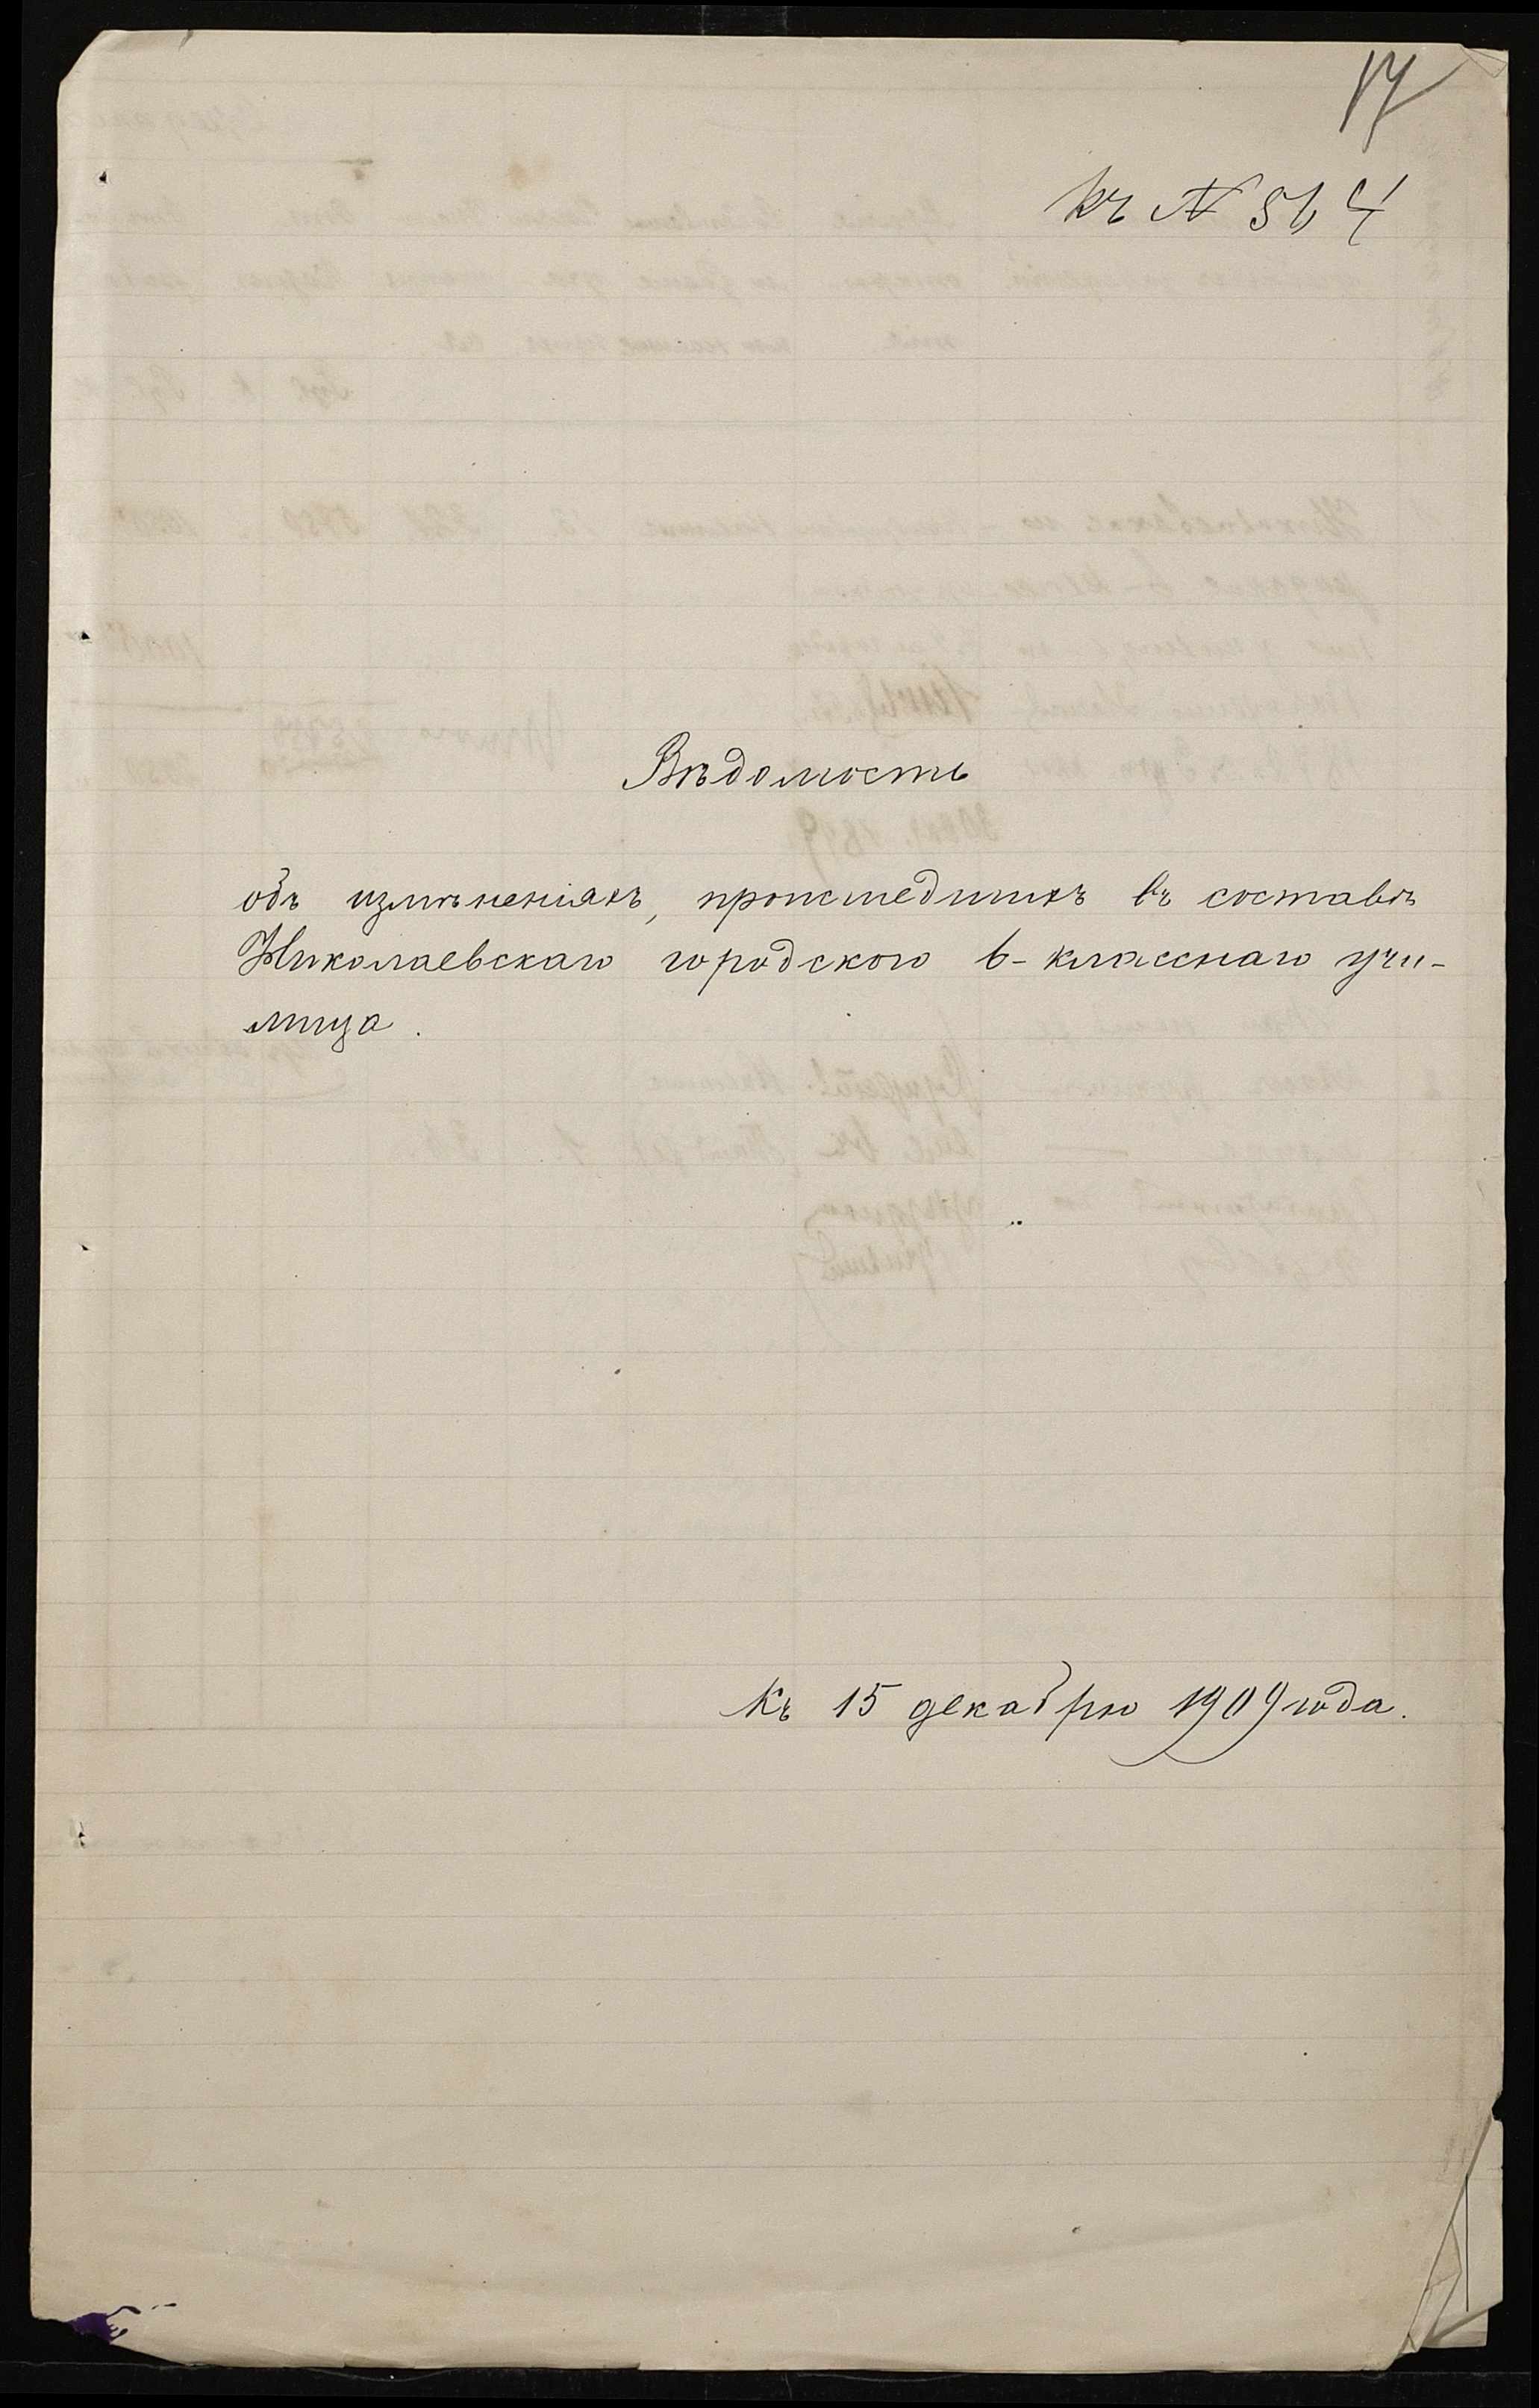 17
къ № 564
Вѣдомость
объ измѣненіяхъ, происшедшихъ въ составѣ
Николаевскаго городского 6-класснаго учи-
лища.
Къ 15 декабрю 1909 года.